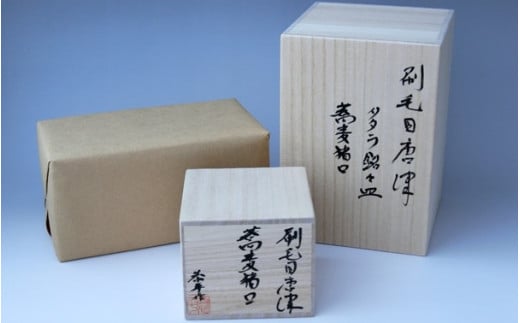 刷毛目唐津
タタラ銘々皿
蕎麦猪口
刷毛目唐津
蕎麦猪口